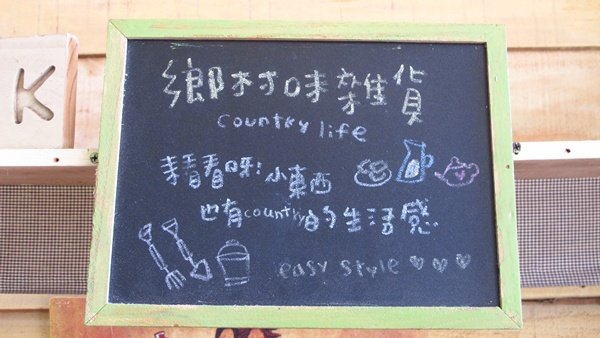 K
鄉村味雜貨
country life
來看看呀!小東西
也有country的生活感
easy style